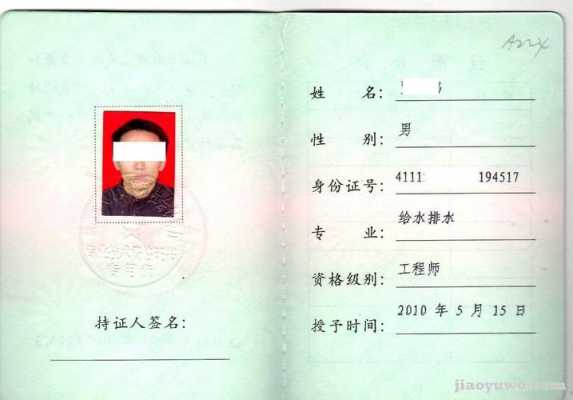 持证人签名:
A224
姓 名:
性 别: 男
身份证号: 4111 194517
专 业: 给水排水
资格级别: 工程师
授予时间: 2010 年 5 月 15 日
jiaoyuwo.com